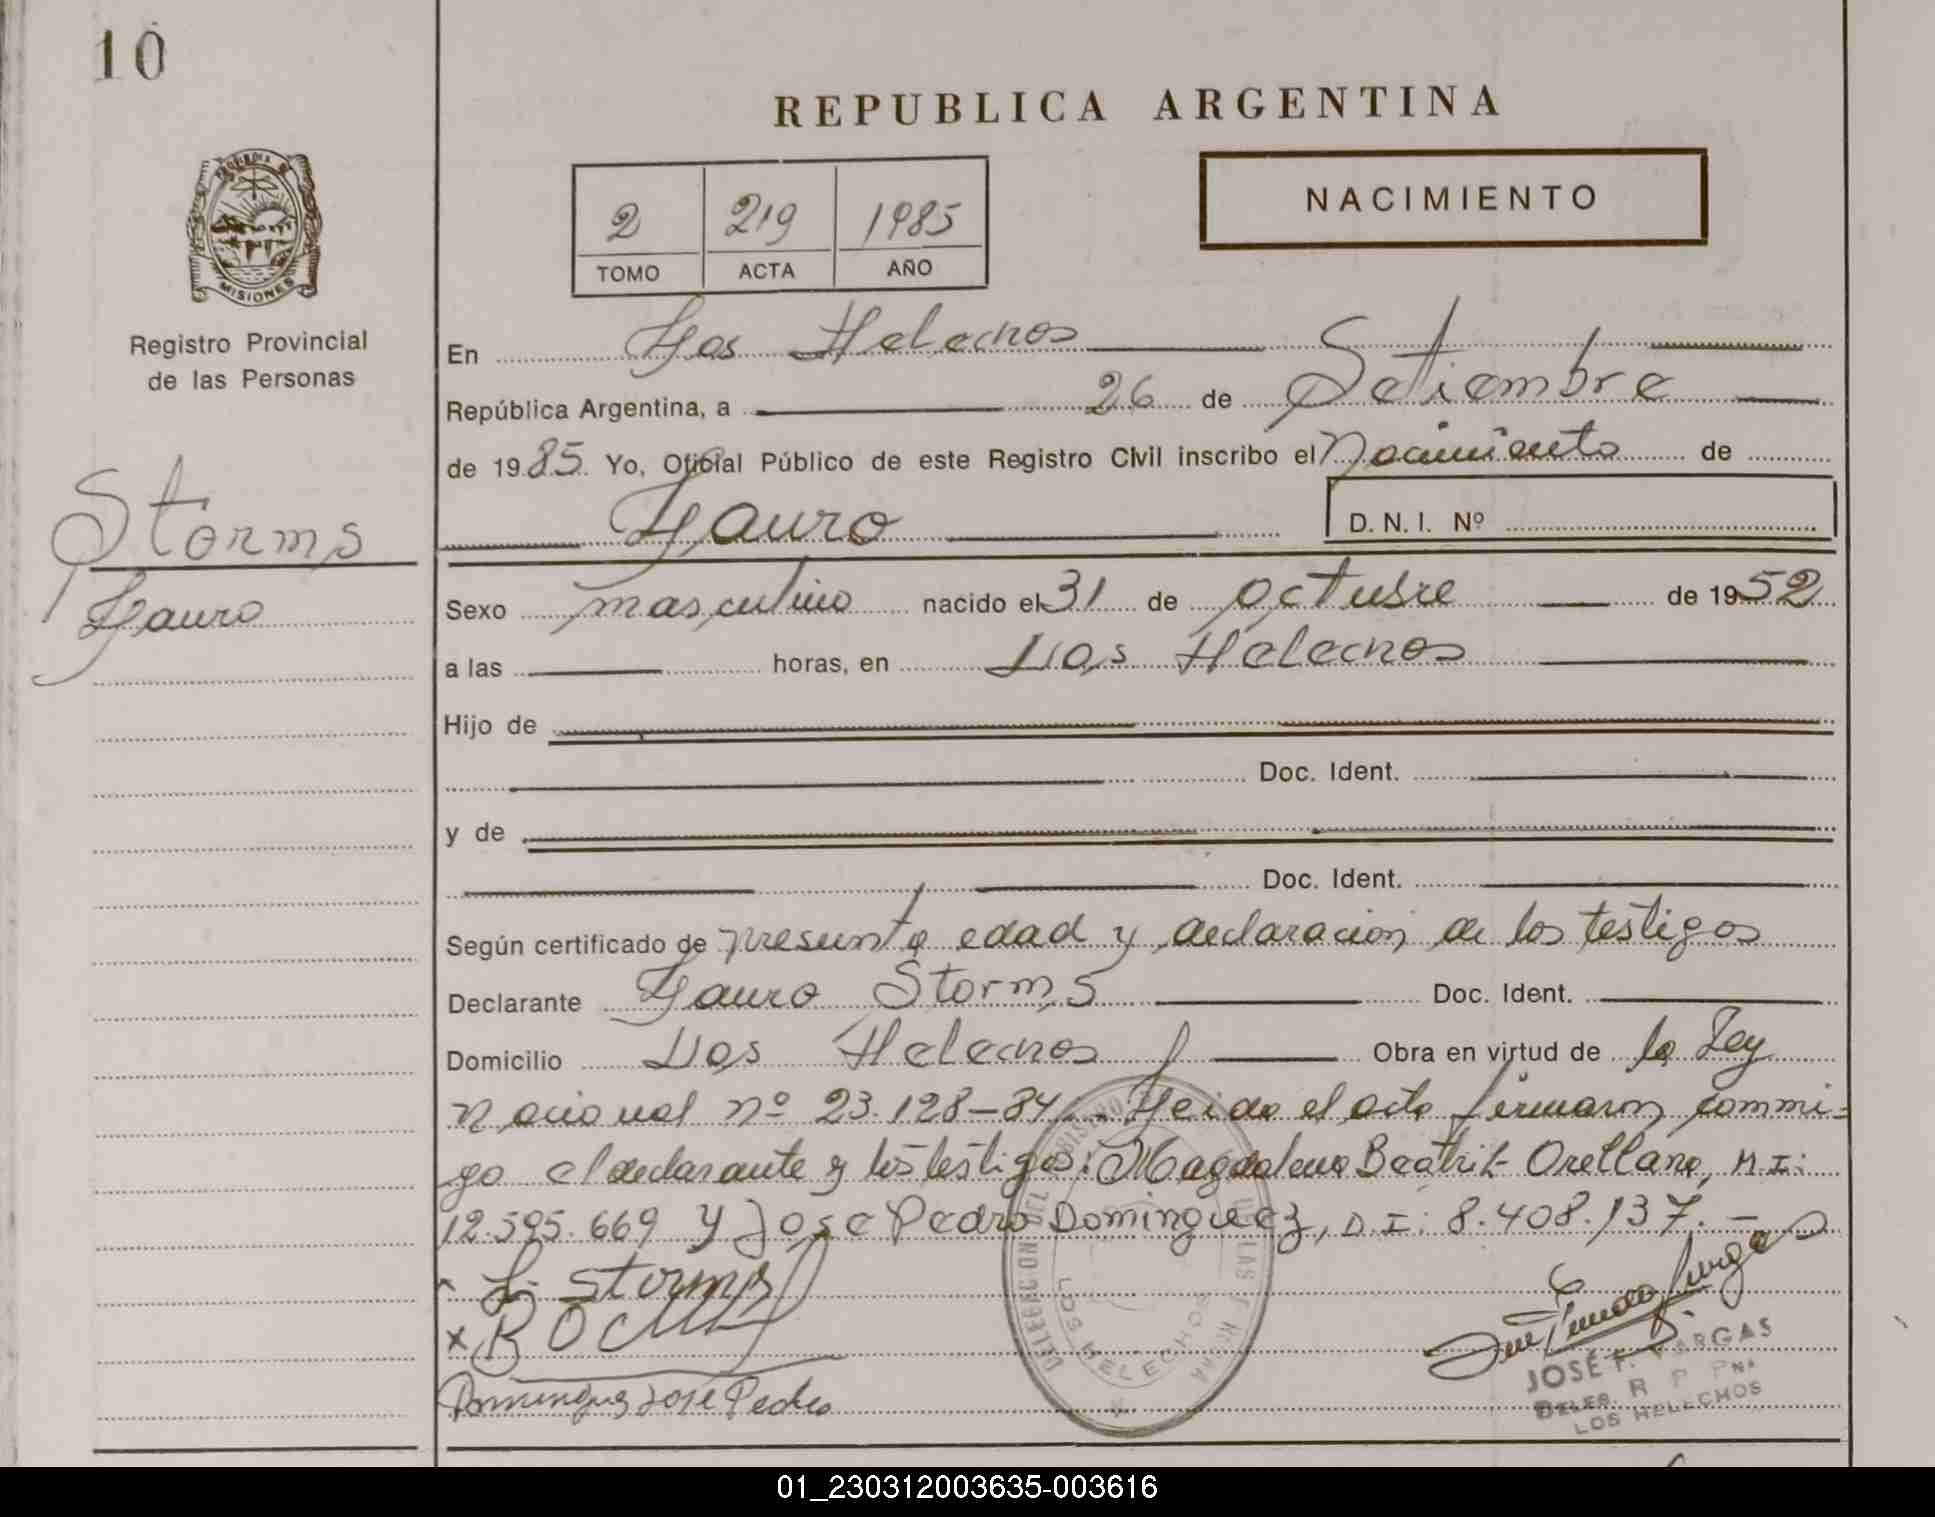 10
REPUBLICA ARGENTINA
PROVINCIA DE
MISIONES
Registro Provincial
de las Personas
2 219 1985
TOMO ACTA AÑO
NACIMIENTO
En Los Helechos
República Argentina, a 26 de Setiembre
de 1985 Yo, Oficial Público de este Registro Civil inscribo el Nacimiento de
Lauro D.N.I. Nº
Storms
Lauro
Sexo masculino nacido el 31 de octubre de 1952
a las horas, en Los Helechos
Hijo de
Doc. Ident.
y de
Doc. Ident.
Según certificado de presunta edad y declaración de los testigos
Declarante Lauro Storms Doc. Ident.
Domicilio Los Helechos Obra en virtud de la Ley
Nacional nº 23.128-84. Leida el acta firmaron conmi=
go el declarante y los testigos: Magdalena Beatriz Orellana, M.I:
12.595.669 y Jose Pedro Dominguez, D.I: 8.408.137.-
L. Storms
x B O
Dominguez Jose Pedro
DELEGACION DEL REGISTRO DE LAS PERSONAS
LOS HELECHOS
JOSÉ F. VARGAS
DELEG. R P PNAS
LOS HELECHOS
01_230312003635-003616